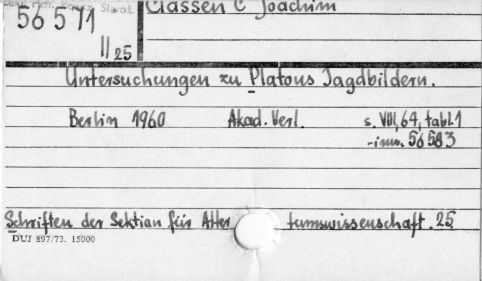 56 571
II 25
Classen C Joachim
Untersuchungen zu Platons Jagdbildern.
Berlin 1960 Akad. Verl. s. VIII, 64, tabl. 1
-inw. 56583
Schriften der Sektion für Alter tumswissenschaft. 25.
DUJ 897/73. 15000